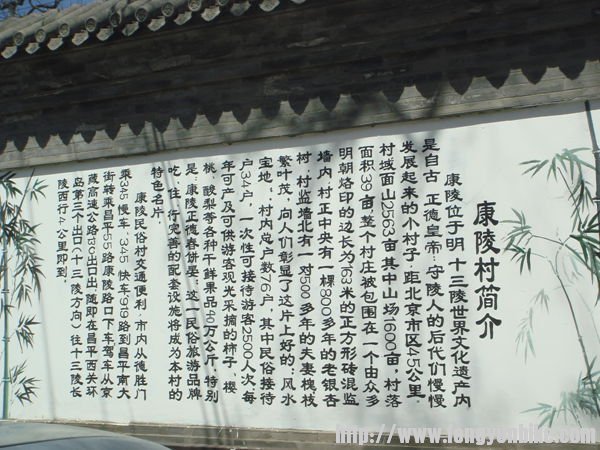 康陵村简介
康陵位于明十三陵世界文化遗产内
是自古"正德皇帝"守陵人的后代们慢慢
发展起来的个村子,距北京市区45公里,
村域面山2563亩,其中山场1600亩,村落
面积39亩,整个村庄被包围在一个由众多
明朝烙印的边长为163米的正方形砖混监
墙内,村正中央有一棵800多年的老银杏
树,村监墙北有一对500多年的夫妻槐枝
繁叶茂,向人们彰显了这片上好的"风水
宝地"。村内总户数76户,其中民俗接待
户34户,一次性可接待游客2500人次,每
年可产及可供游客观光采摘的柿子、樱
桃、酸梨等各种干鲜果品40万公斤,特别
是"康陵正德春饼宴"这一民俗旅游品牌
吃、住、行完善的配套设施将成为本村的
特色名片。
康陵民俗村交通便利,市内从德胜门
乘345慢车、345快车919路到昌平南大
街转乘昌平55路康陵路口下车驾车从京
藏高速公路30出口出,随即在昌平西关环
岛第三个出口(十三陵方向)往十三陵长
陵西行4公里即到。